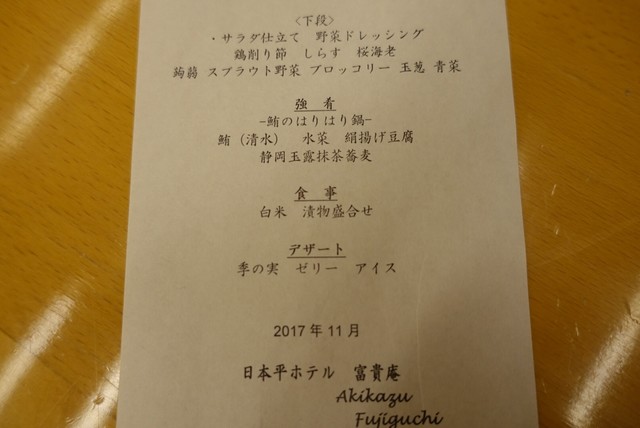 〈下段〉
・サラダ仕立て 野菜ドレッシング
鶏削り節 しらす 桜海老
蒟蒻 スプラウト野菜 ブロッコリー 玉葱 青菜
強 肴
−鮪のはりはり鍋−
鮪（清水） 水菜 絹揚げ豆腐
静岡玉露抹茶蕎麦
食 事
白米 漬物盛合せ
デザート
季の実 ゼリー アイス
2017 年 11 月
日本平ホテル 富貴庵
Akikazu
Fujiguchi